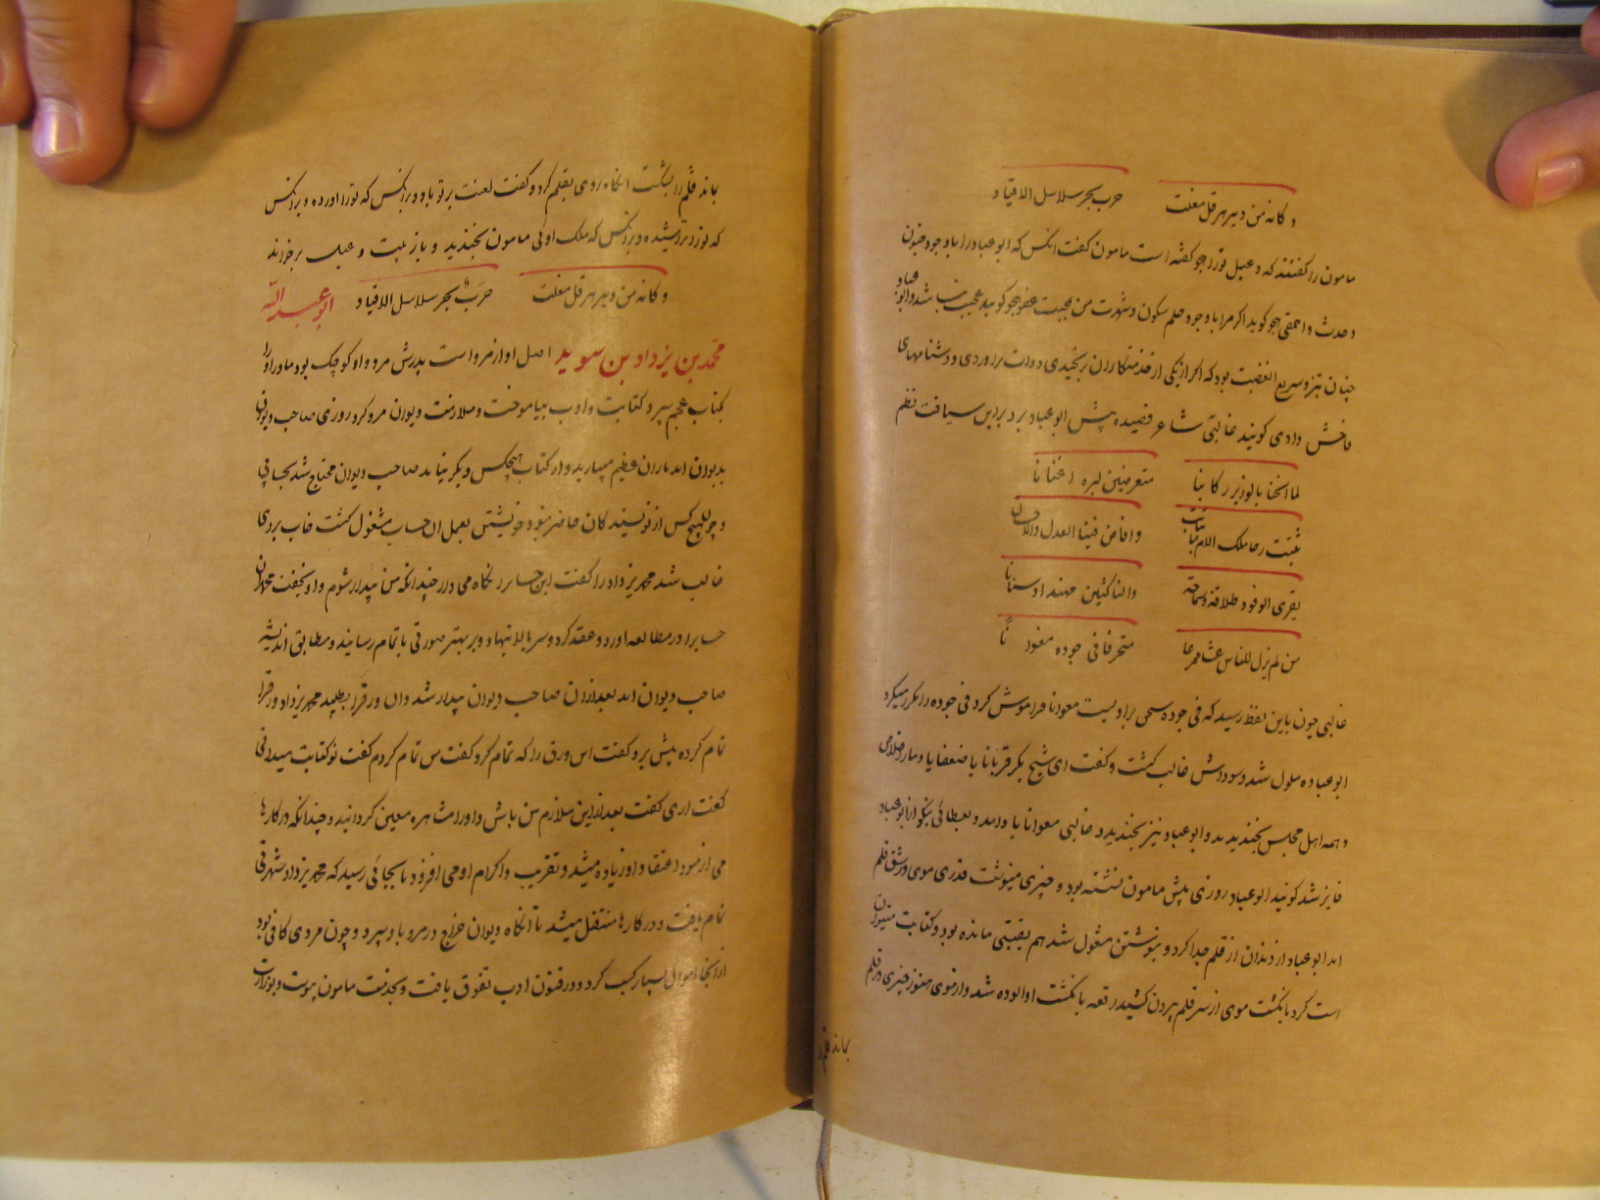 و کانه من دیر هرقل مفلت حرب یجر سلاسل الاقیاد
مامون را گفتند که دعبل تو را هجو گفته است مامون گفت انکس که ابو عباد را با وجود جنون
و حدت و احمقی هجو گوید اگر مرا با وجود حلم سکون و شهرت من بمحبت عفو هجو گوید عجیب نباشد و ابو عباد
چنان تیز و سریع الغضب بود که اگر از یکی از خدمتکاران برنجیدی دوات براوردی و دشنامهای
فاحش دادی گویند غالبی شاعر قصیده پیش ابو عباد برد برین سیاقت نظم
لما انخنا بالوزیر رکابنا متعرضین لبره اغنانا
ثبتت رحا ملک الامام بثابت و افاض فینا العدل والاحسان
یقری الوفود طلاقة و سماحة والناکثین مهندا و سنانا
من لم یزل للناس غیثا ممرعا متخرقا فی جوده معوانا
غالبی چون باین لفظ رسید که فی جوده بیت معوانا فراموش کرد فی جوده را مکرر میکرد
ابو عباد ملول شد و سوداش غالب گشت و گفت ای شیخ بگو قرنانا یا ضعفانا و ما را خلاص
و همه اهل مجلس بخندیدند و ابو عباد نیز بخندید و غالبی معوانا یاد امد و بعطائی نیکو از ابو عباد
فایز شد گویند ابو عباد روزی پیش مامون نشسته بود و چیزی مینوشت قدری موی در شق قلم
امد ابو عباد از دندان از قلم جدا کرد و بنوشتن مشغول شد هم بقیتی مانده بود و کتابت
است کرد بانگشت موی از سر قلم بیرون کشید رقعه بانگشت او الوده شد و از موی هنوز چیزی در قلم
بماند قلم را
بماند قلم را بشکست انگاه روی بقلم کرد و گفت لعنت بر تو باد و بر انکس که تو را اورده و بر انکس
که تو را تراشیده و بر انکس که ملک اوئی مامون بخندید و باز بیت دعبل بر خواند
و کانه من دیر هرقل مفلت حرب یجر سلاسل الاقیاد ابو عبد الله
محمد بن یزداد بن سوید اصل او از مرو است پدرش مرد و او کوچک بود مادر او را
بکتاب عجم سپرد کتابت و ادب بیاموخت و ملازمت دیوان مرو کرد روزی صاحب دیوان
بدیوان امد باران عظیم میبارید و از کتاب هیچکس دیگر نیامد صاحب دیوان محتاج شد بحسابی
و چون هیچ کس از نویسندگان حاضر نبود خویشتن بعمل ان حساب مشغول گشت خاب بروی
غالب شد محمد یزداد را گفت این حساب را نگاه می دار چندانکه من بیدار شوم و او بخفت محمد ان
حساب را در مطالعه اورد و عقد کرد و سر بالا نهاد و بر بهتر صورتی با تمام رسانید و مطابق اندیشه
صاحب دیوان امد بعد ازان صاحب دیوان بیدار شد و ان ورق را بطلبید محمد یزداد ورق را
تمام کرده پیش برد گفت این ورق را که تمام کرد گفت من تمام کردم گفت تو کتابت میدانی
گفت اری گفت بعد ازین ملازم من باش و او را مشاهره معین گردانید و چندانکه در کارها
می ازمود اعتقاد او زیاده میشد و تقریب و اکرام او می افزود تا بجائی رسید که محمد یزداد شهرتی
تمام یافت و در کارها منتقل میشد تا انگاه دیوان خراج در مرو باو سپرد و چون مردی کافی بود
از انجا اموالی بسیار کسب کرد و در فنون ادب تفوق یافت و بخدمت مامون پیوست و بوزارت